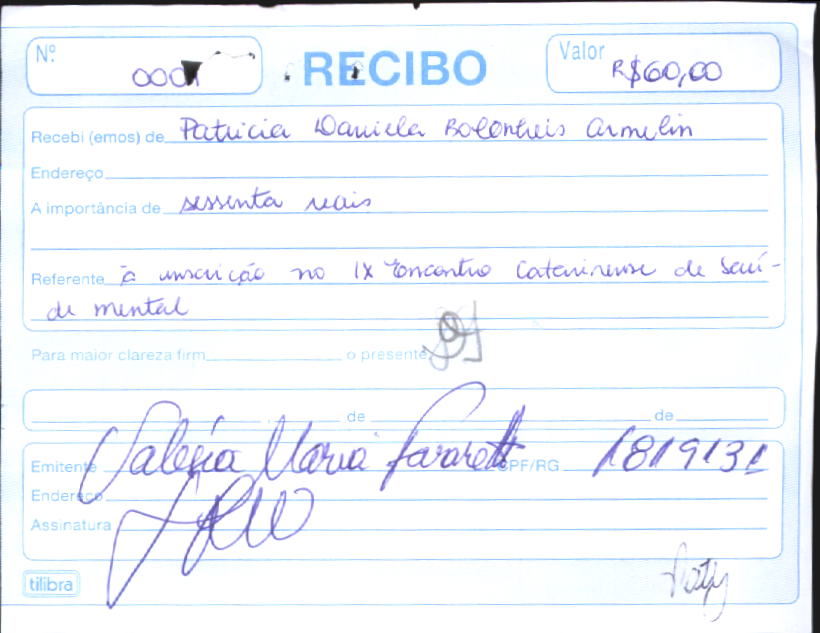 Nº 000 RECIBO Valor R$60,00
Recebi (emos) de Patricia Daniela Armelin
Endereço
A importância de sessenta reais
Referente à inscrição no IX Encontro Catarinense de Saú-
de mental
Para maior clareza firm o presente
de de
Emitente Valéria Maria CPF/RG 1819131
Endereço
Assinatura
tilibra Paty